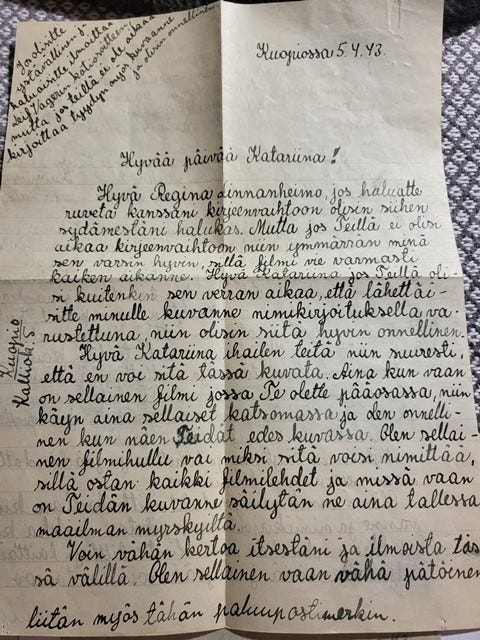 Jos olisitte
ystävällinen ja
haluaisitte ilmoittaa
Leif Vagerin kotiosoitteen
mutta jos teillä ei ole aikaa
kirjoittaa tyydyn myös kuvaanne
ja olisin onnellinen.
Kuopiossa 5.4.43.
Hyvää päivää Katariina!
Hyvä Regina Linnanheimo, jos haluatte
ruveta kanssani kirjeenvaihtoon olisin siihen
sydämestäni halukas. Mutta jos Teillä ei olisi
aikaa kirjeenvaihtoon niin ymmärrän minä
sen varsin hyvin, sillä filmi vie varmasti
kaiken aikanne. Hyvä Katariina jos Teillä oli-
si kuitenkin sen verran aikaa, että lähettäi-
sitte minulle kuvanne nimikirjoituksella va-
rustettuna, niin olisin siitä hyvin onnellinen.
Hyvä Katariina ihailen teitä niin suuresti,
että en voi sitä tässä kuvata. Aina kun vaan
on sellainen filmi jossa Te olette pääosassa, niin
käyn aina sellaiset katsomassa ja olen onnelli-
nen kun näen Teidät edes kuvassa. Olen sellai-
nen filmihullu vai miksi sitä voisi nimittää,
sillä ostan kaikki filmilehdet ja missä vaan
on Teidän kuvanne säilytän ne aina tallessa
maailman myrskyiltä.
Voin vähän kertoa itsestäni ja ilmoista täs-
sä välillä. Olen sellainen vaan vähä pätöinen
liitän myös tähän paluupostimerkin.
Kuopio
Kalliok. 5